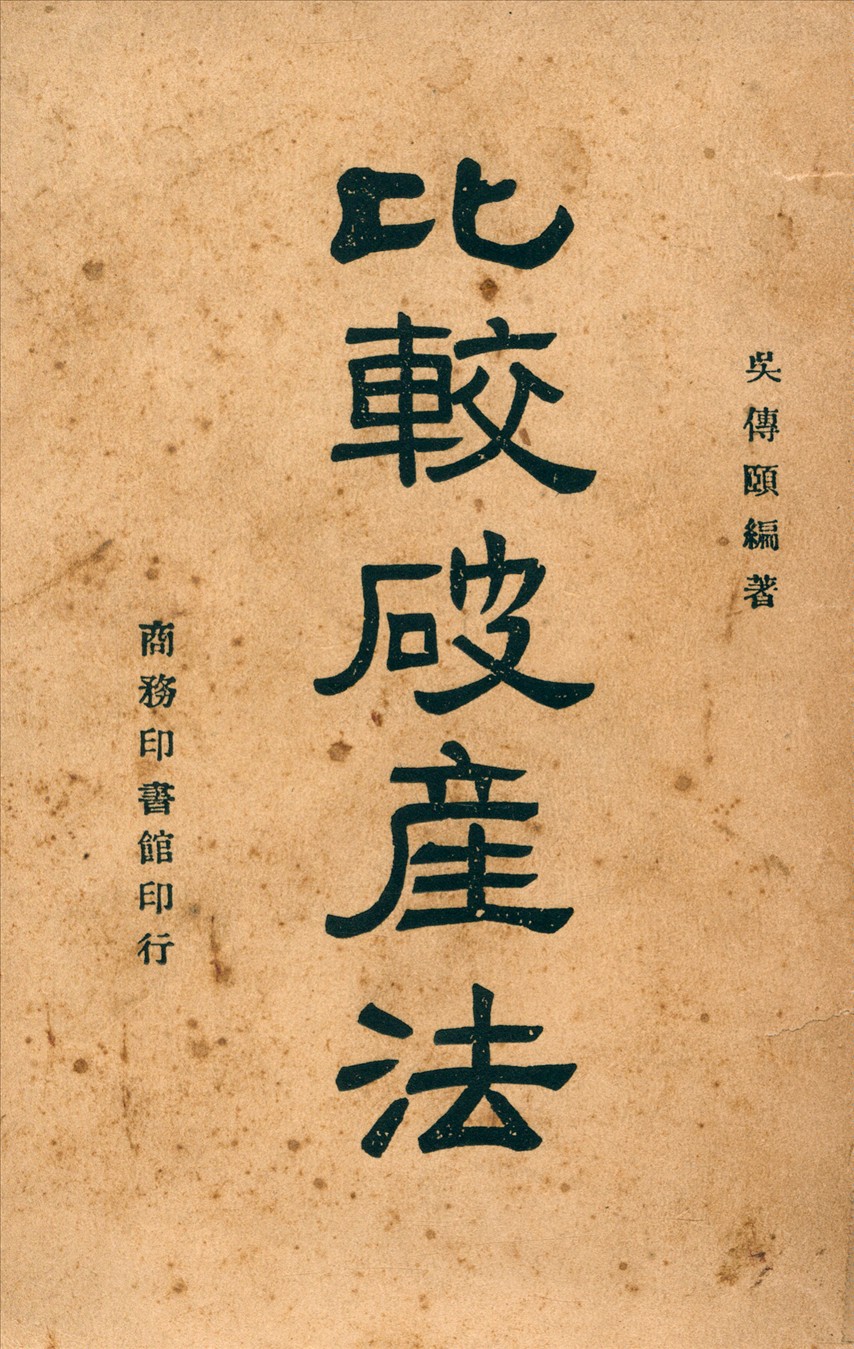 吳傳頤編著
比較破產法
商務印書館印行